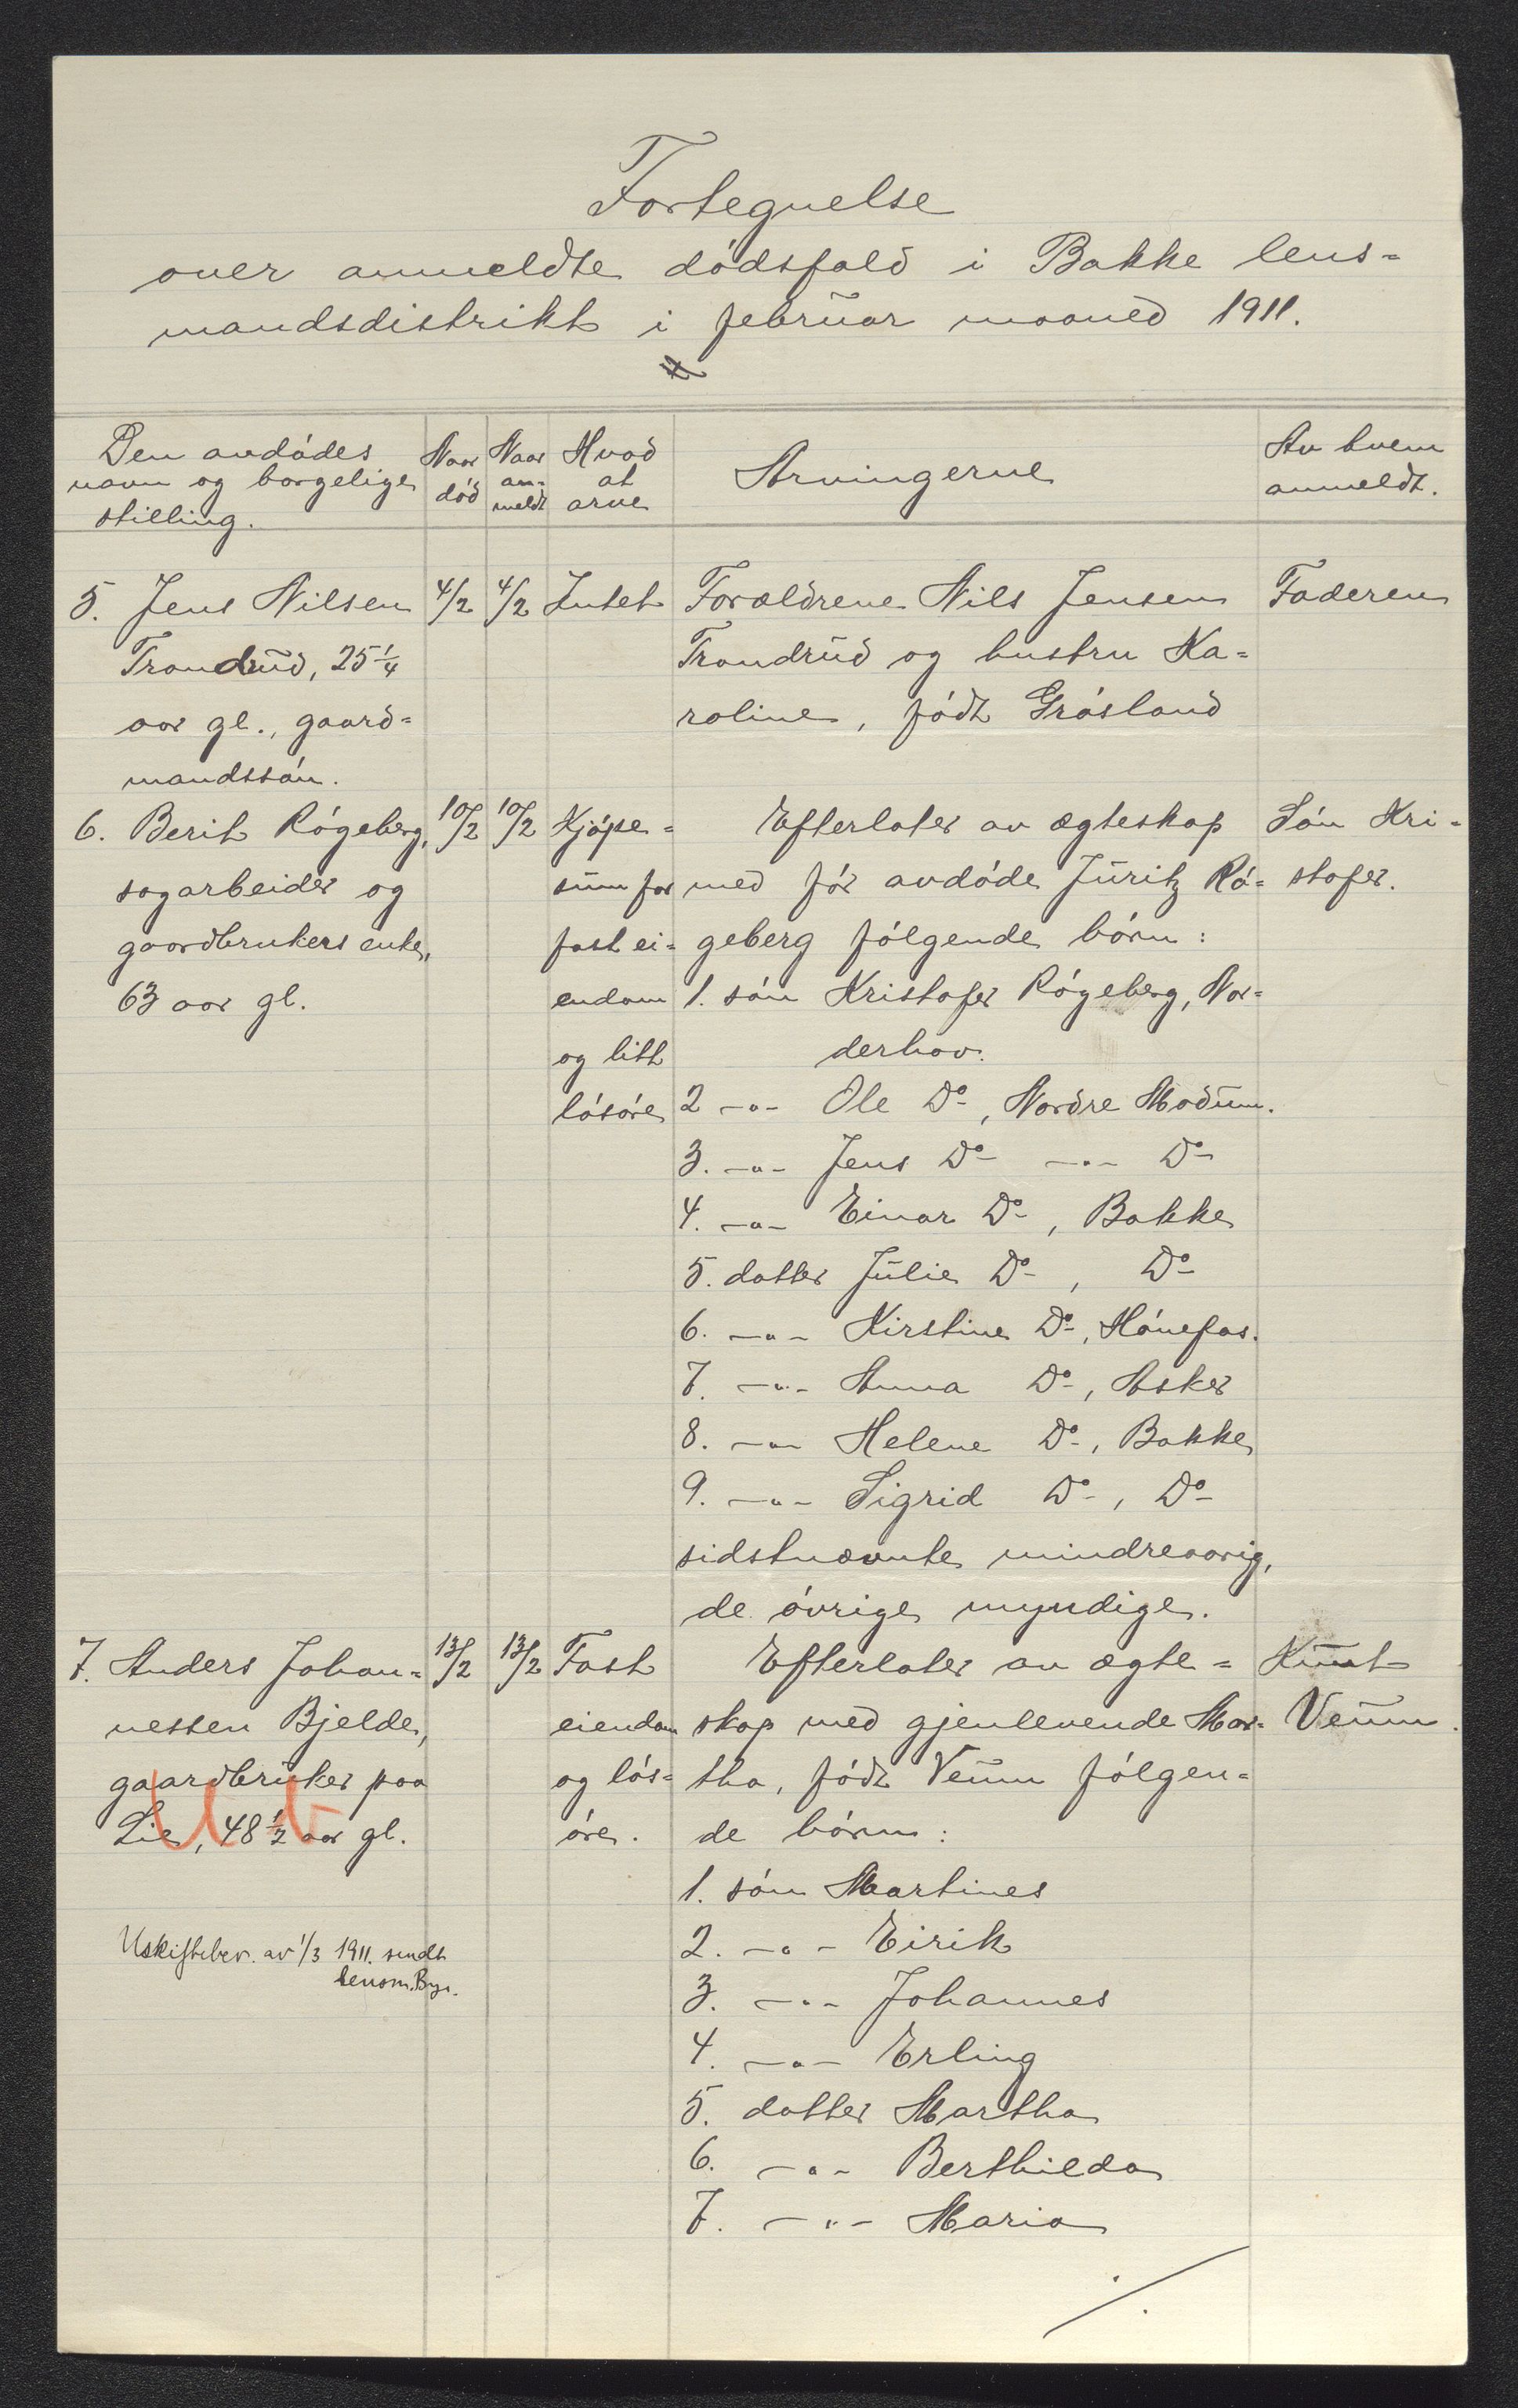 Fortegnelse
over anmeldte dødsfald i Bakke lens=
mandsdistrikt i februar maaned 1911.
Den avdødes
navn og borgelige
stilling.
Naar
død
Naar
an=
meldt
Hvad
at
arve
Arvingerne
Av hvem
anmeldt.
5. Jens Nilsen
Trondrud, 25 1/4
aar gl., gaard=
mandssøn.
4/2
4/2
Intet
Forældrene Nils Jensen
Trondrud og hustru Ka=
roline, født Grøsland
Faderen
6. Berit Røgeberg,
sagarbeider og
gaardbrukers enke,
63 aar gl.
10/2
10/2
Kjøpe=
sum for
fast ei=
endom
og litt
løsøre
Efterlater av ægteskap
med før avdøde Juritz Rø=
geberg følgende børn:
1. søn Kristofer Røgeberg, Nor=
derhov.
2 -"- Ole Do, Nordre Modum.
3. -"- Jens Do -"- Do
4. -"- Einar Do, Bakke
5. datter Julie Do, Do
6. -"- Kirstine Do, Hønefos.
7. -"- Anna Do, Asker
8. -"- Helene Do, Bakke
9. -"- Sigrid Do, Do
sidstnævnte mindreaarig,
de øvrige myndige.
Søn Kri=
stofer.
7. Anders Johan=
nessen Bjelde,
gaardbruker paa
Lie, 48 1/2 aar gl.
Uskiftebev. av 1/3 1911. sendt
lensm. Bye.
13/2
13/2
Fast
eiendom
og løs=
øre.
Efterlater av ægte=
skap med gjenlevende Mar=
tha, født Veum følgen=
de børn:
1. søn Martines
2. -"- Eirik
3. -"- Johannes
4. -"- Erling
5. datter Martha
6. -"- Berthilda
7. -"- Maria
Knut
Veum.